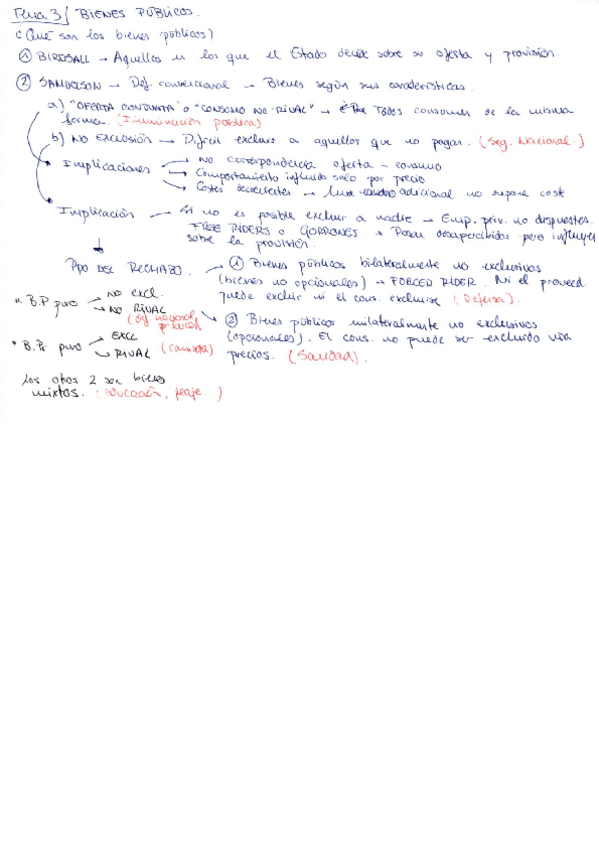 Tema 3/ BIENES PÚBLICOS.
¿Qué son los bienes públicos?
① BIRDSALL → Aquellos en los que el Estado decide sobre su oferta y provisión
② SAMUELSON → Def. convencional → Bienes según sus características.
a) "OFERTA CONJUNTA" o "CONSUMO NO RIVAL" → Todos consumen de la misma
forma. (Iluminación pública)
b) NO EXCLUSIÓN → Difícil excluir a aquellos que no pagan. (Seg. Nacional)
Implicaciones → No correspondencia oferta - consumo
→ Comportamiento influido solo por precio
→ Costes decrecientes → Una adicional no supone cost
Implicación → Si no es posible excluir a nadie → Emp. priv. no dispuestas.
FREE RIDERS o GORRONES → Pasan desapercibidos pero influyen
sobre la provisión.
PPO DEL RECHAZO. → ① Bienes públicos bilateralmente no exclusivos
(bienes no opcionales) → FORCED RIDER. Ni el proveed.
puede excluir ni el cons. excluirse (Defensa).
* B.P puro → NO excl.
→ NO RIVAL
→ ② Bienes públicos unilateralmente no exclusivos
(opcionales). El cons. no puede ser excluido vía
precios. (Sanidad).
* B.Pr puro → EXCL
→ RIVAL (camiseta)
Los otros 2 son bienes
mixtos. (educación, peaje..)